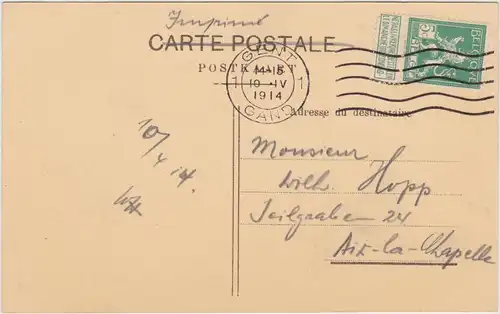 Imprimé
CARTE POSTALE
POSTKAART
GENT
14-15
1 10-IV 1
1914
GAND
BELGIQUE
5
BELGIË
Adresse du destinataire
10/4 14.
Monsieur
Wilh. Hopp
Seilgraben 24
Aix-la-Chapelle